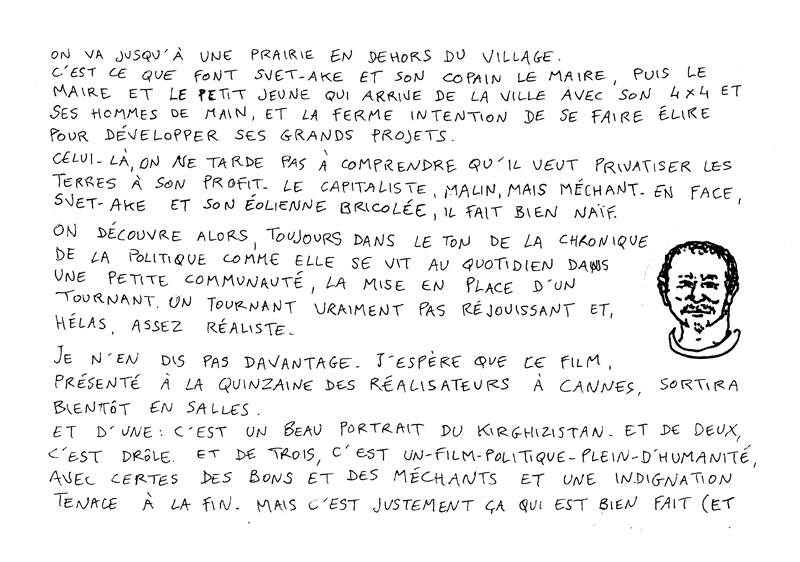 ON VA JUSQU'À UNE PRAIRIE EN DEHORS DU VILLAGE.
C'EST CE QUE FONT SVET-AKE ET SON COPAIN LE MAIRE, PUIS LE
MAIRE ET LE PETIT JEUNE QUI ARRIVE DE LA VILLE AVEC SON 4x4 ET
SES HOMMES DE MAIN, ET LA FERME INTENTION DE SE FAIRE ÉLIRE
POUR DÉVELOPPER SES GRANDS PROJETS.
CELUI-LÀ, ON NE TARDE PAS À COMPRENDRE QU'IL VEUT PRIVATISER LES
TERRES À SON PROFIT. LE CAPITALISTE, MALIN, MAIS MÉCHANT. EN FACE,
SVET-AKE ET SON ÉOLIENNE BRICOLÉE, IL FAIT BIEN NAÏF.
ON DÉCOUVRE ALORS, TOUJOURS DANS LE TON DE LA CHRONIQUE
DE LA POLITIQUE COMME ELLE SE VIT AU QUOTIDIEN DANS
UNE PETITE COMMUNAUTÉ, LA MISE EN PLACE D'UN
TOURNANT. UN TOURNANT VRAIMENT PAS RÉJOUISSANT ET,
HÉLAS, ASSEZ RÉALISTE.
JE N'EN DIS PAS DAVANTAGE. J'ESPÈRE QUE CE FILM,
PRÉSENTÉ À LA QUINZAINE DES RÉALISATEURS À CANNES, SORTIRA
BIENTÔT EN SALLES.
ET D'UNE: C'EST UN BEAU PORTRAIT DU KIRGHIZISTAN. ET DE DEUX,
C'EST DRÔLE. ET DE TROIS, C'EST UN-FILM-POLITIQUE-PLEIN-D'HUMANITÉ,
AVEC CERTES DES BONS ET DES MÉCHANTS ET UNE INDIGNATION
TENACE À LA FIN. MAIS C'EST JUSTEMENT ÇA QUI EST BIEN FAIT (ET